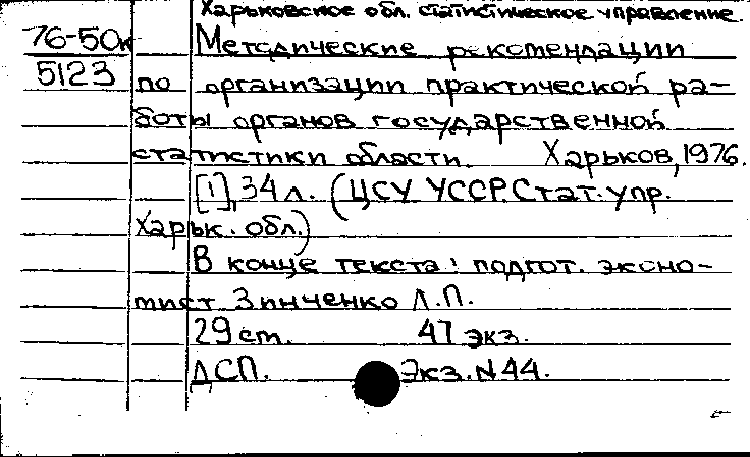 Харьковское обл. статистическое управление.
76-50к Методические рекомендации
5123 по организации практической ра-
боты органов государственной
статистики области. Харьков, 1976.
[1], 34 л. (ЦСУ УССР. Стат. упр.
Харьк. обл.)
В конце текста: подгот. эконо-
мист Зинченко Л.П.
29 см. 47 экз.
ДСП. Экз. N 44.